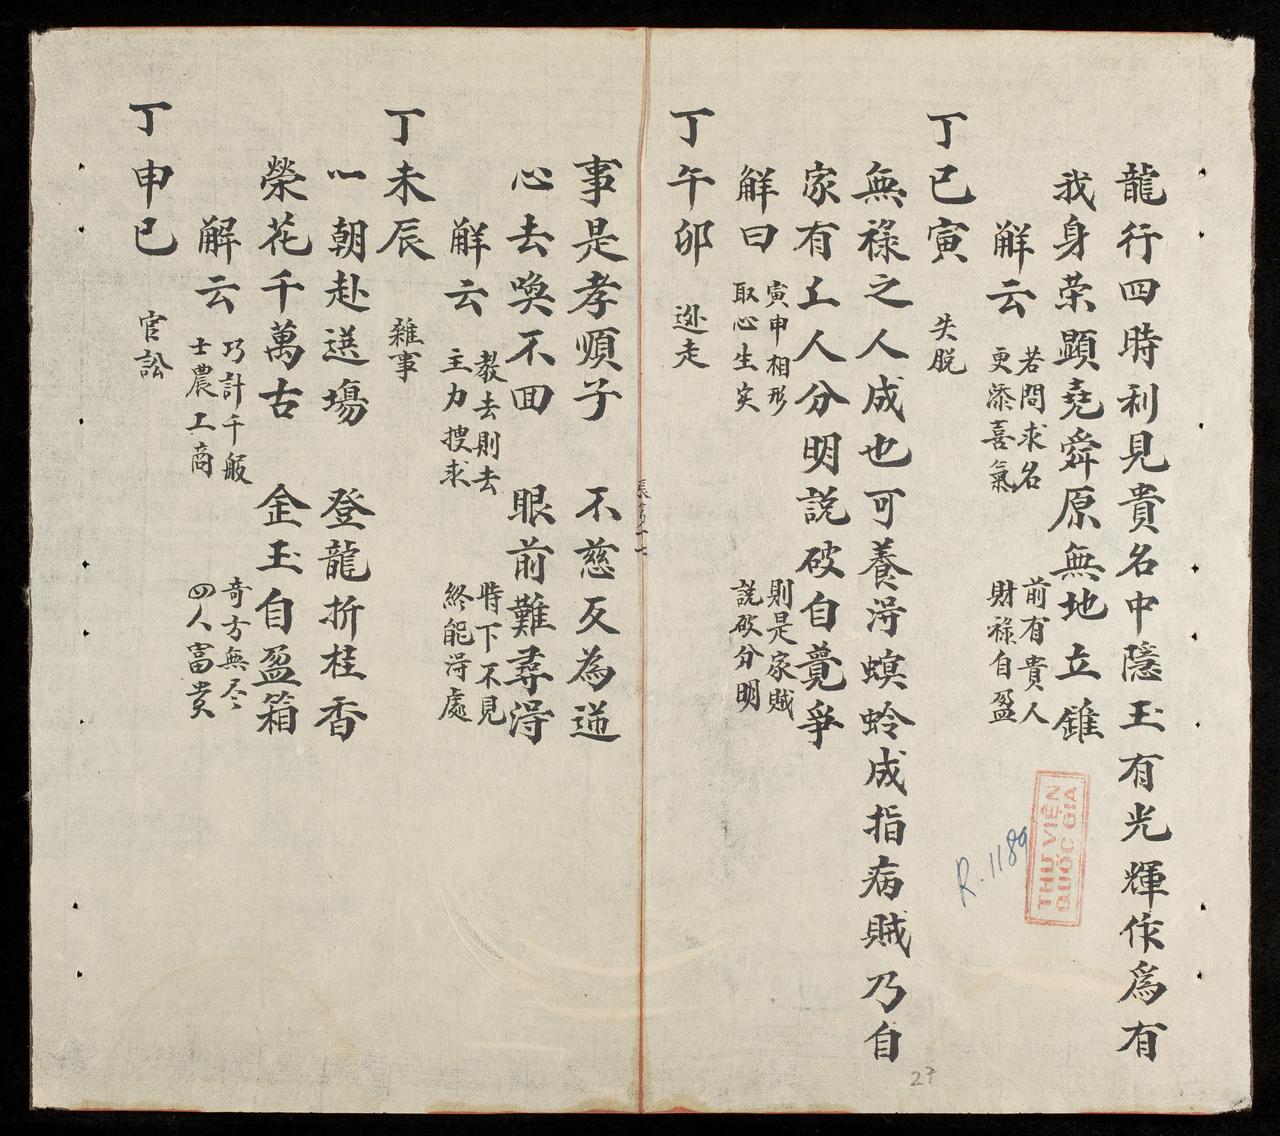 龍行四時利見貴名中隱玉有光輝作爲有
我身荣顕堯舜原無地立錐
解云 若問求名 前有貴人
更添喜氣 財祿自盈
丁巳寅 失脱
無祿之人成也可養淂螟蛉成指病賊乃自
家有工人分明説破自覺爭
解曰 寅申相形 則是家賊
取心生实 説破分明
丁午卯 迯走
事是孝順子 不慈反為逆
心去喚不囬 眼前難尋淂
解云 教去則去 時下不見
主力搜求 終能淂處
丁未辰 雜事
一朝赴選場 登龍折桂香
榮花千萬古 金玉自盈箱
解云 巧計千般 奇方無尽
士農工商 四人富贵
丁申巳 官訟
THƯ VIỆN
QUỐC GIA
R.1189
27